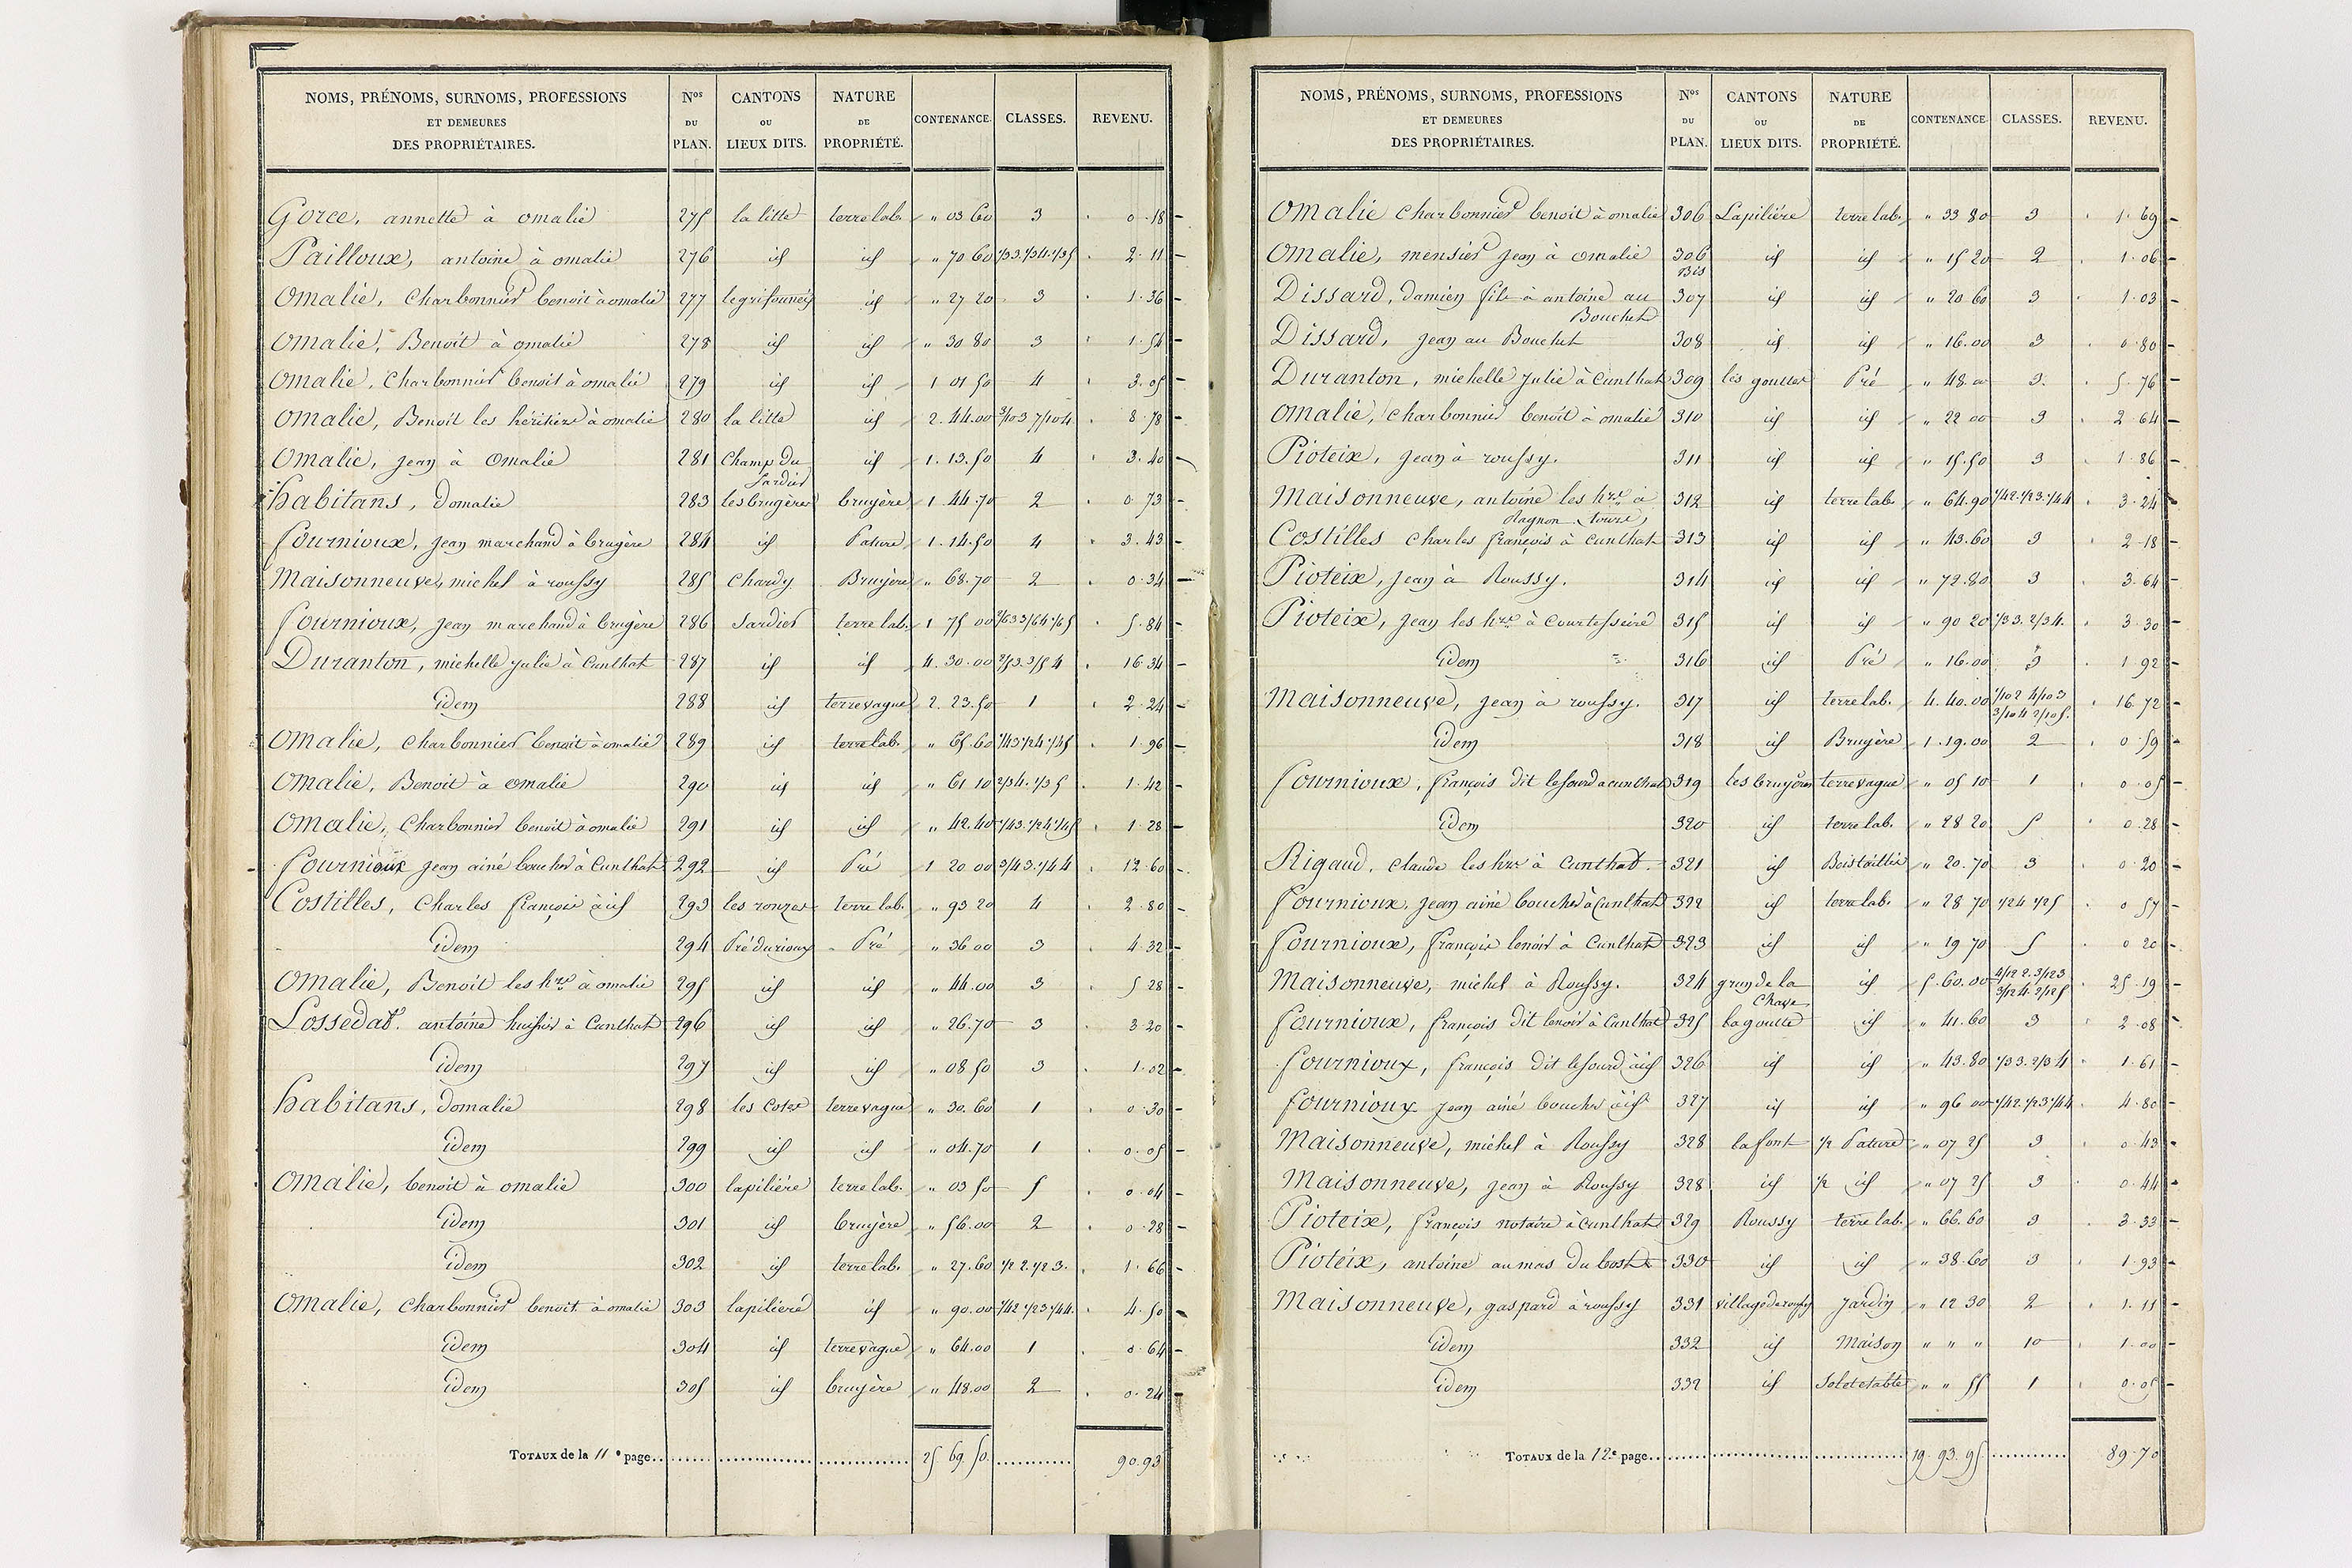 NOMS, PRÉNOMS, SURNOMS, PROFESSIONS ET DEMEURES DES PROPRIÉTAIRES. Nos DU PLAN. CANTONS OU LIEUX DITS. NATURE DE PROPRIÉTÉ. CONTENANCE. CLASSES. REVENU.
Gorce, annette à omalie 275 la litte terre lab. " 03 60 3 0.18
Pailloux, antoine à omalie 276 id id " 70 60 1/33.1/34.1/35 2.11
Omalie, Charbonnier benoit à omalie 277 id " 27 20 3 1.36
Omalie, Benoit à omalie 278 id id " 30 80 3 1.54
Omalie, Charbonnier benoit à omalie 279 id id 1 01 50 4 3.05
Omalie, Benoit les héritiers à omalie 280 la litte id 2.44.00 3/103 7/104 8.78
Omalie, jean à Omalie 281 Champ du Sardier id 1.13.50 4 3.40
habitans, Domalie 283 les brugères bruyère 1.44.70 2 0.73
fournioux, jean marchand à brugère 284 id Pature 1.14.50 4 3.43
Maisonneuve, michel à roussy 285 Chardy Bruyère " 68.70 2 0.34
fournioux, jean marchand à brugère 286 Sardier terre lab. 1 75 00 2/63 3/64 1/65 5.84
Duranton, michelle julie à Cunlhat 287 id id 4.30.00 2/53.3/54 16.34
idem 288 id terre vague 2.23.50 1 2.24
Omalie, Charbonnier benoit à omalie 289 id terre lab. " 65.60 1/43 1/24 1/45 1.96
Omalie, Benoit à omalie 290 id id " 61 10 2/34.1/35 1.42
Omalie, Charbonnier benoit à omalie 291 id id " 42.40 1/43.1/24 1/45 1.28
fournioux jean ainé boucher à Cunlhat 292 id Pré 1 20 00 3/43.1/44 12.60
Costilles, Charles françois à id 293 les ronzes terre lab. " 93 20 4 2.80
idem 294 Pré durioux Pré " 36 00 3 4.32
Omalie, Benoit les hres à omalie 295 id id " 44.00 3 5 28
Lossedat. antoine huissier à Cunlhat 296 id id " 26.70 3 3 20
idem 297 id id " 08 50 3 1.02
habitans, Domalie 298 les Cotes terre vague " 30.60 1 0.30
idem 299 id id " 04.70 1 0.05
Omalie, benoit à omalie 300 lapiliére terre lab. " 03 50 5 0.04
idem 301 id bruyère " 56.00 2 0.28
idem 302 id terre lab. " 27.60 1/2 2.1/2 3. 1.66
Omalie, Charbonnier benoit à omalie 303 lapilieré id " 90.00 1/42.1/23 1/44. 4.50
idem 304 id terre vague " 64.00 1 0.64
idem 305 id bruyère " 48.00 2 0.24
TOTAUX de la 11e page 25 69 50. 90.93
NOMS, PRÉNOMS, SURNOMS, PROFESSIONS ET DEMEURES DES PROPRIÉTAIRES. Nos DU PLAN. CANTONS OU LIEUX DITS. NATURE DE PROPRIÉTÉ. CONTENANCE. CLASSES. REVENU.
Omalie Charbonnier benoit à omalie 306 Lapiliére terre lab. " 33 80 3 1.69
Omalie, mensier jean à omalie 306 Bis id id " 15 20 2 1.06
Dissard, Damien fils à antoine au Bouchet 307 id id " 20 60 3 1.03
Dissard, jean au Bouchet 308 id id " 16.00 3 0.80
Duranton, michelle Julie à Cunlhat 309 les gouttes Pré " 48.00 3. 5.76
Omalie, Charbonnier benoit à omalie 310 id id " 22 00 3 2 64
Pioteix, jean à roussy. 311 id id " 15.50 3 1.86
Maisonneuve, antoine les hres à 312 id terre lab. " 64.90 1/42.1/23.1/44 3.24
Costilles Charles françois à Cunlhat 313 id id " 43.60 3 2.18
Pioteix, jean à Roussy. 314 id id " 72.80 3 3.64
Pioteix, jean les hres à Courtesseire 315 id id " 90 20 1/33.2/34. 3 30
idem 316 id Pré " 16.00 3 1 92
Maisonneuve, jean à roussy. 317 id terre lab. 4.40.00 1/102 4/103 3/104 2/105. 16 72
idem 318 id Bruyère 1.19.00 2 0.59
fournioux, françois dit lesourd a cunlhat 319 les bruyères terre vague " 05 10 1 0.05
idem 320 id terre lab. " 28 20 5 0.28
Rigaud, Claude les hres à Cunlhat. 321 id Bois taillis " 20.70 3 0 20
fournioux, jean ainé boucher à Cunlhat 322 id terre lab. " 28 70 1/24 1/25 0 57
fournioux, françois lenoir à Cunlhat 323 id id " 19 70 5 0 20
Maisonneuve, michel à Roussy. 324 id 5.60.00 4/12 2.3/123 3/124.2/125 25.19
fournioux, françois dit lenoir à Cunlhat 325 lagoutte id " 41.60 3 2.08
fournioux, françois dit lesourd à id 326 id id " 43.80 1/33.2/34 1.61
fournioux jean ainé boucher à id 327 id id " 96 00 1/42.1/23 1/44 4.80
Maisonneuve, michel à Roussy 328 lafont 1/2 Pature " 07 25 3 0.43
Maisonneuve, jean à Roussy 328 id 1/2 id " 07 25 3 0.44
Pioteix, françois notaire à Cunlhat 329 Roussy terre lab. " 66.60 3 3.33
Pioteix, antoine au mas du bost 330 id id " 38.60 3 1.93
Maisonneuve, gaspard à roussy 331 village de roussy Jardin " 12 30 2 1.11
idem 332 id Maison " " " 10 1.00
idem 332 id Sol et etable " " 55 1 0.05
TOTAUX de la 12e page 19.93.95 89.70